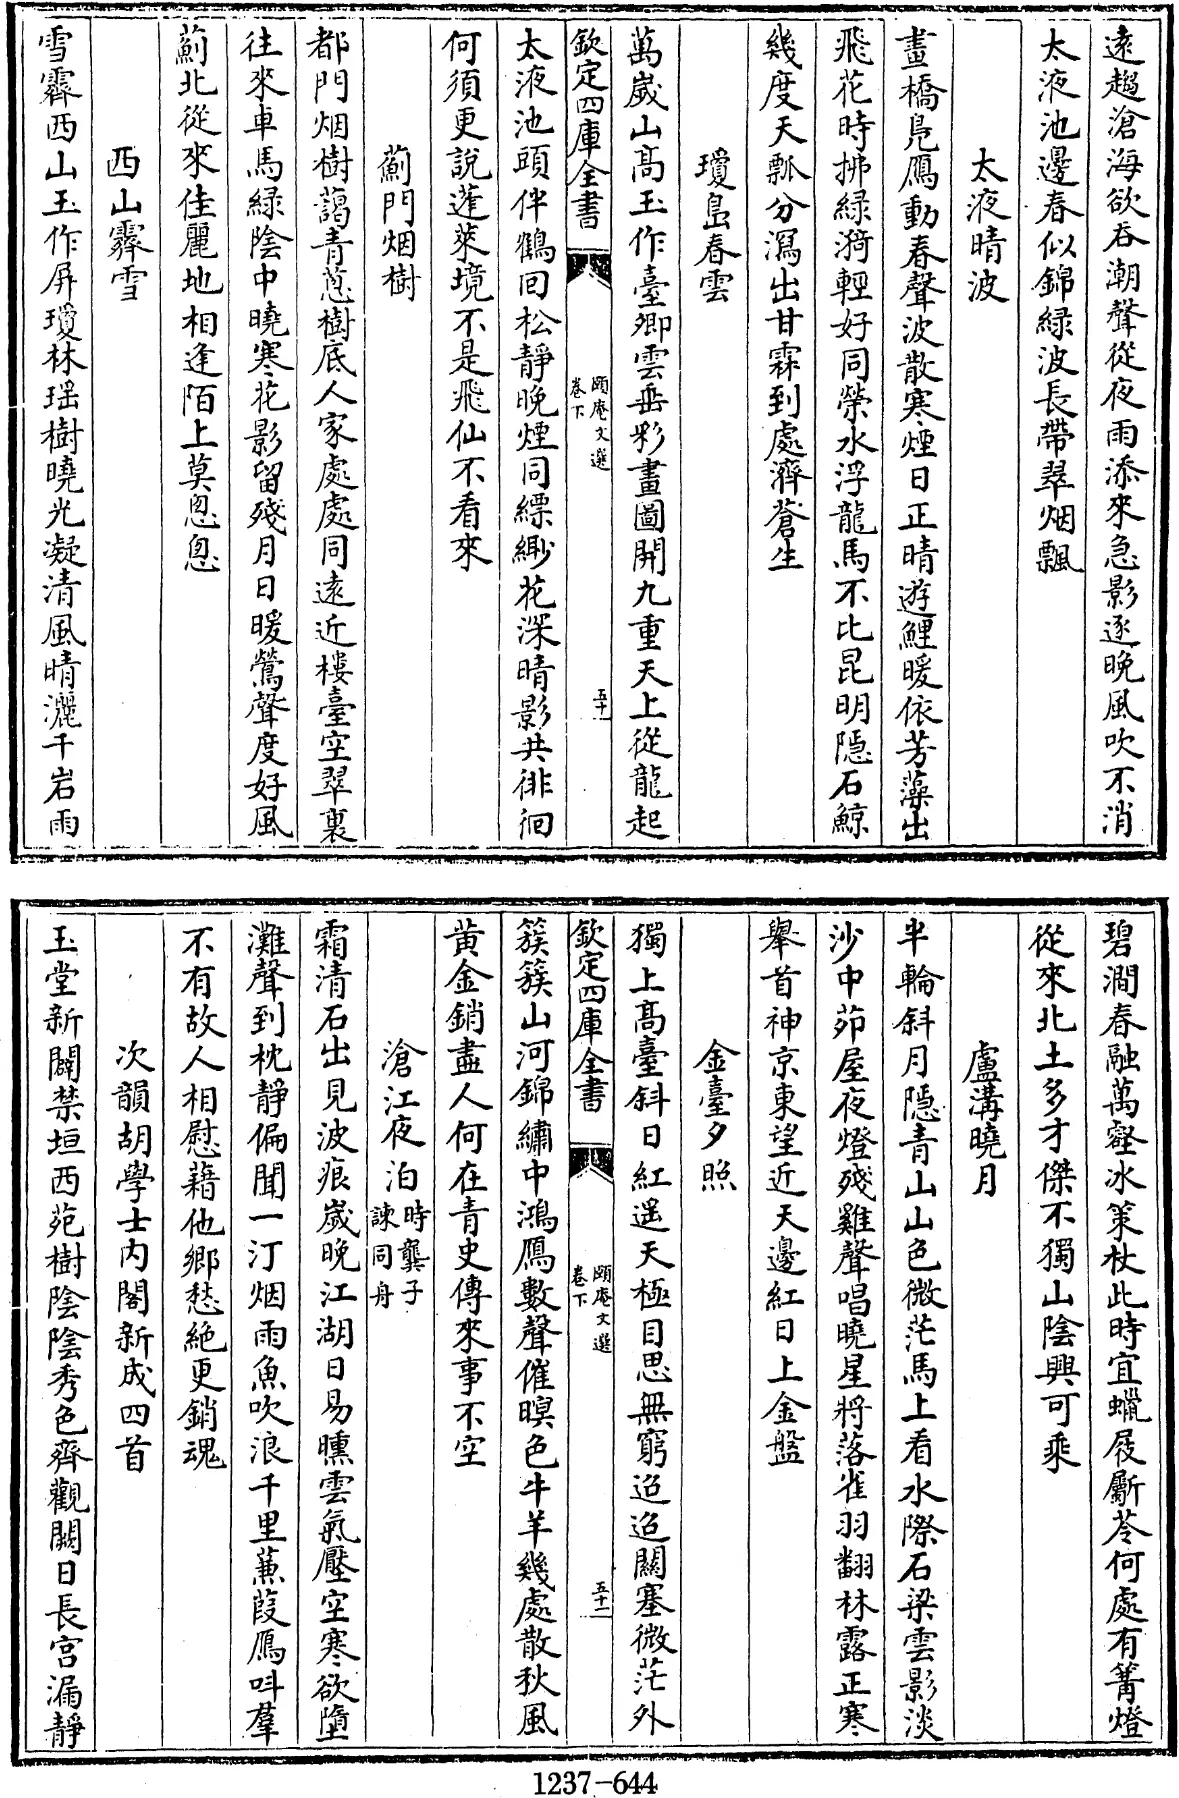 逺趨滄海欲吞潮聲從夜雨添來急影逐晚風吹不消
太液池邊春似錦緑波長帶翠烟飄
太液晴波
畫橋鳧鴈動春聲波散寒煙日正晴遊鯉暖依芳藻出
飛花時拂緑漪輕好同榮水浮龍馬不比昆明隠石鯨
幾度天瓢分瀉出甘霖到處濟蒼生
瓊島春雲
萬嵗山髙玉作臺卿雲垂彩畫圖開九重天上從龍起
欽定四庫全書
頤庵文選
卷下
五十
太液池頭伴鶴回松靜晚煙同縹緲花深晴影共徘徊
何須更說蓬萊境不是飛仙不看來
薊門烟樹
都門烟樹藹青葱樹底人家處處同逺近樓臺空翠裏
往來車馬緑陰中曉寒花影留殘月日暖鶯聲度好風
薊北從來佳麗地相逢陌上莫怱怱
西山霽雪
雪霽西山玉作屏瓊林瑶樹曉光凝清風晴灑千岩雨
碧澗春融萬壑冰策杖此時宜蠟屐斸苓何處有篝燈
從來北土多才傑不獨山陰興可乘
盧溝曉月
半輪斜月隠青山山色微茫馬上看水際石梁雲影淡
沙中茆屋夜燈殘雞聲唱曉星將落雀羽翻林露正寒
舉首神京東望近天邊紅日上金盤
金臺夕照
獨上髙臺斜日紅遥天極目思無窮迢迢關塞微茫外
欽定四庫全書
頤庵文選
卷下
五十一
簇簇山河錦繡中鴻鴈數聲催暝色牛羊幾處散秋風
黄金銷盡人何在青史傳來事不空
滄江夜泊時龔子諫同舟
霜清石出見波痕嵗晚江湖日易曛雲氣壓空寒欲墮
灘聲到枕靜偏聞一汀烟雨魚吹浪千里蒹葭鴈呌羣
不有故人相慰藉他鄉愁絶更銷魂
次韻胡學士内閣新成四首
玉堂新闢禁垣西苑樹陰陰秀色齊觀闕日長宫漏靜
1237-644